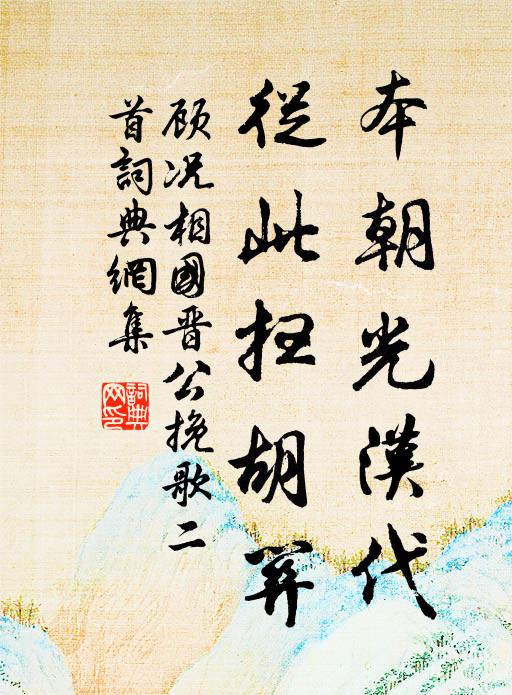 本朝光漢代
從此扫胡塵
顾况相國晋公挽歌二
首詞典網集
詞典
网印